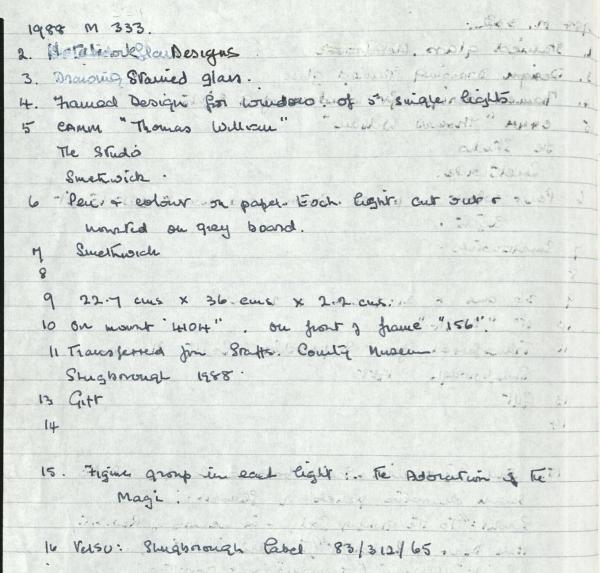 1988 M 333.
2. Designs
3. Drawing Stained glass.
4. Framed Design for window of 5 single lights
5 CAMM "Thomas William"
The Studio
Smethwick.
6 Pen & colour on paper. Each light cut out &
mounted on grey board.
7 Smethwick
8
9 22.7 cms x 36 cms x 2.2 cms.
10 On mount "HOH". On front of frame "156".
11 Transferred from Staffs. County Museum
Shugborough 1988.
13 Gift
14
15. Figure group in each light :- The Adoration of the
Magi.
16 Verso: Shugborough label 83/312/65.